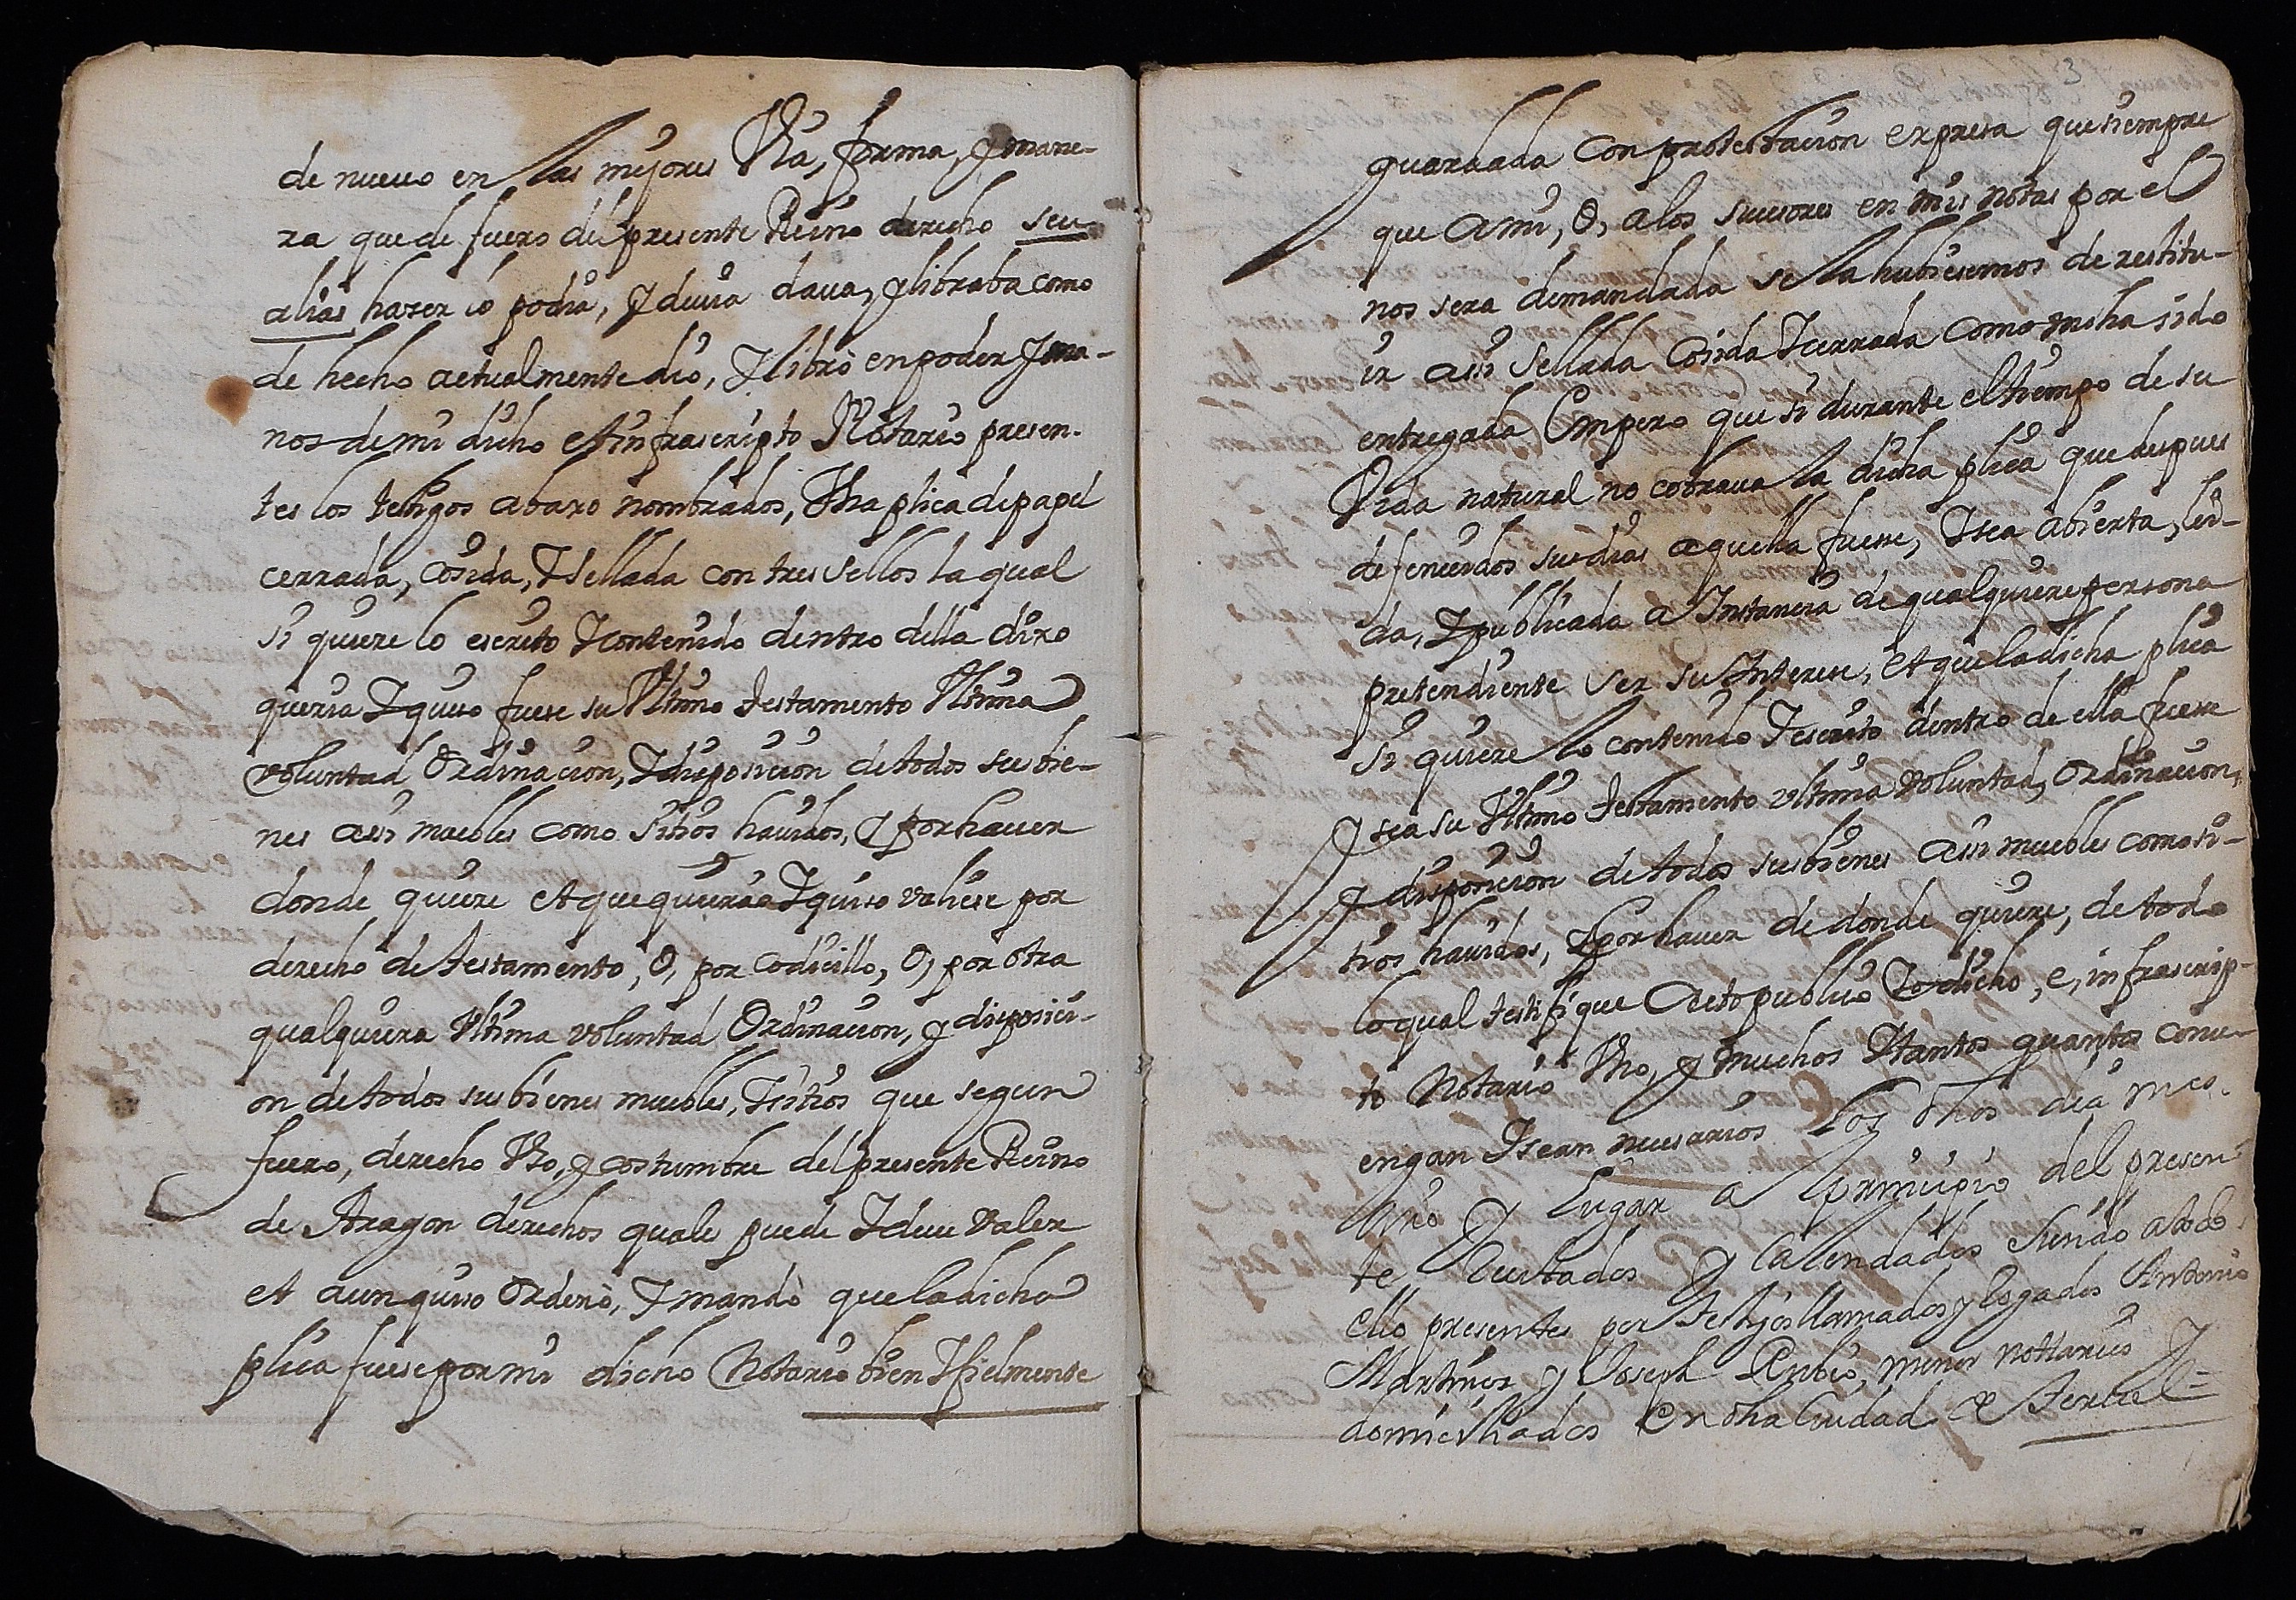 de nueuo en las mejores Via, forma, y mane-
ra que de fuero del presente Reino derecho seu
alias hazer lo podia, y deuia daua, y libraba como
de hecho actualmente dio, y libró en poder y ma-
nos de mi dicho et infrascripto Notario presen-
tes los testigos abaxo nombrados, Vna plica de papel
cerrada, cosida, y sellada con tres sellos la qual
si quiere lo escrito y contenido dentro della dixo
queria y quiso fuese su Vltimo testamento Vltima
voluntad Ordinacion, y disposicion de todos su bie-
nes assi muebles como sitios hauidos, y por hauer
donde quiere et que queria y quiso valiese por
derecho de testamento, O, por codicillo, O, por otra
qualquiera Vltima voluntad Ordinacion, y disposici-
on de todos sus bienes muebles, y sitios que segun
fuero, derecho Vso, y costumbre del presente Reino
de Aragon derechos quale puede y deue valer
et aun quiso Ordenó, y mandó que la dicha
plica fuese por mi dicho Notario bien y fielmente
3
guardada con protestacion expresa que siempre
que a mi, O, a los sucesores en mis notas por el
nos sera demandada se la hubiesemos de restitu-
ir assi sellada cosida y cerrada como me ha sido
entregada Empero que si durante el tiempo de su
Vida natural no cobraua la dicha plica que despues
de fenecidos sus dias aquella fuese, y sea abierta, lei-
da, y publicada a Instancia de qualquiere persona
pretendiente ser su Interese, et que la dicha plica
si quiere lo contenido y escrito dentro de ella fuesse
y sea su Vltimo testamento vltima voluntad, Ordinacion,
y disposicion de todos sus bienes assi muebles como si-
tios hauidos, y por hauer de donde quiere, de todo
lo qual testifique Acto publico Yo dicho, e, infrascrip-
to Notario Vno, y muchos y tantos quantos conu-
engan y sean necesarios los dhos dia mes.
Año y lugar a principio del presen
te recitados y calendados siendo a todo
ello presentes por testigos llamados y rogados Antonio
Martinez y Joseph Rubio, menor nottarios y
domiciliados en dha Ciudad de Teruel =